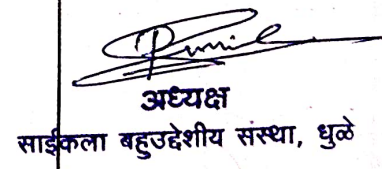 अध्यक्ष
साईकला बहुउद्देशीय संस्था, धुळे